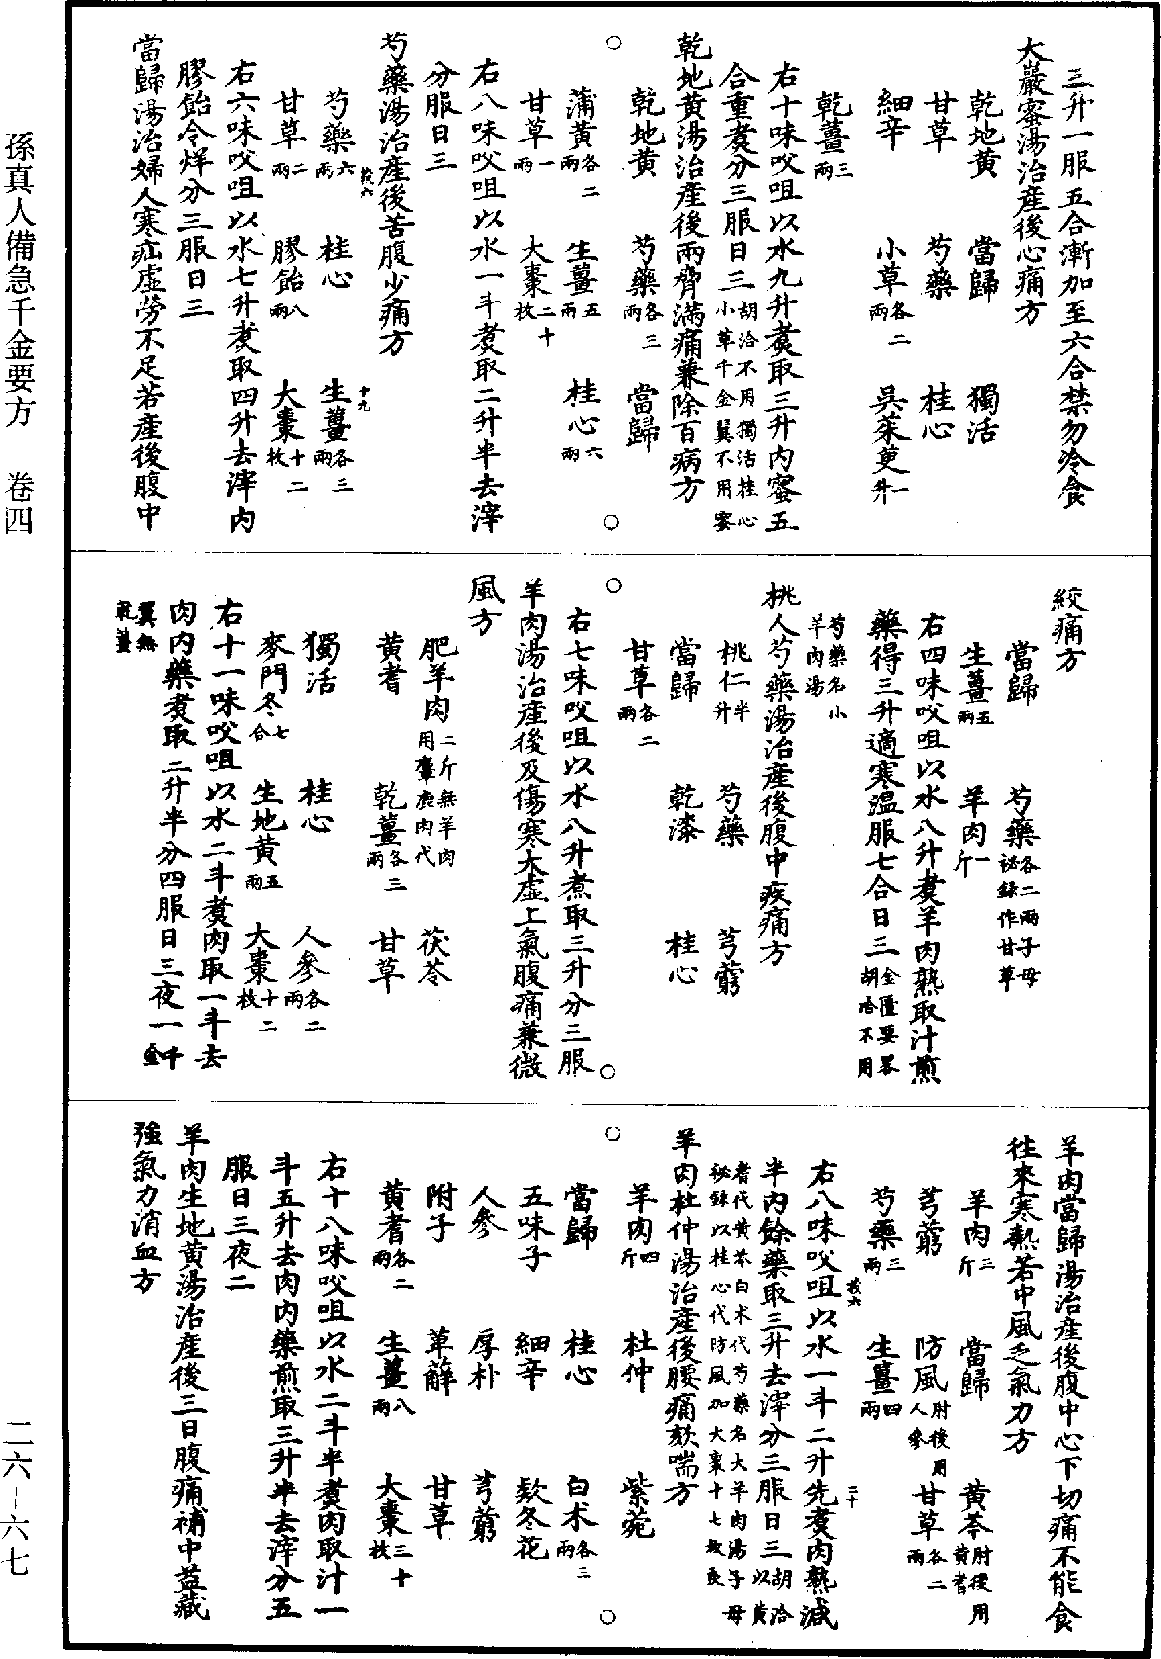 三升一服五合漸加至六合禁勿冷食
大嚴蜜湯治產後心痛方
乾地黃　當歸　獨活
甘草　芍藥　桂心
細辛　小草各二兩　吳茱萸一升
乾薑三兩
右十味㕮咀以水九升煮取三升內蜜五
合重煮分三服日三胡洽不用獨活桂心小草千金翼不用蜜
乾地黃湯治產後兩脅滿痛兼除百病方
乾地黃　芍藥各三兩　當歸
蒲黃各二兩　生薑五兩　桂心六兩
甘草一兩　大棗二十枚
右八味㕮咀以水一斗煮取二升半去滓
分服日三
芍藥湯治產後苦腹少痛方
芍藥六兩　桂心　生薑各三兩
甘草二兩　膠飴八兩　大棗十二枚
右六味㕮咀以水七升煮取四升去滓內
膠飴令烊分三服日三
當歸湯治婦人寒疝虛勞不足若產後腹中
絞痛方
當歸　芍藥各二兩子母秘錄作甘草
生薑五兩　羊肉一斤
右四味㕮咀以水八升煮羊肉熟取汁煎
藥得三升適寒溫服七合日三金匱要畧胡洽不用
芍藥名小羊肉湯
桃人芍藥湯治產後腹中疾痛方
桃仁半升　芍藥　芎藭
當歸　乾漆　桂心
甘草各二兩
右七味㕮咀以水八升煮取三升分三服
羊肉湯治產後及傷寒大虛上氣腹痛兼微
風方
肥羊肉二斤無羊肉用麞鹿肉代　茯苓
黃耆　乾薑各三兩　甘草
獨活　桂心　人參各二兩
麥門冬七合　生地黃五兩　大棗十二枚
右十一味㕮咀以水二斗煮肉取一斗去
肉內藥煮取二升半分四服日三夜一千金
翼無乾薑
羊肉當歸湯治產後腹中心下切痛不能食
往來寒熱若中風乏氣力方
羊肉三斤　當歸　黃芩肘後用黃耆
芎藭　防風肘後用人參　甘草各二兩
芍藥三兩　生薑四兩
右八味㕮咀以水一斗二升先煮肉熟減
半內餘藥取三升去滓分三服日三胡洽以黃
耆代黃芩白朮代芍藥名大羊肉湯子母秘錄以桂心代防風加大棗十七枚良
羊肉杜仲湯治產後腰痛欬喘方
羊肉四斤　杜仲　紫菀
當歸　桂心　白朮各三兩
五味子　細辛　款冬花
人參　厚朴　芎藭
附子　萆薢　甘草
黃耆各二兩　生薑八兩　大棗三十枚
右十八味㕮咀以水二斗半煮肉取汁一
斗五升去肉內藥煎取三升半去滓分五
服日三夜二
羊肉生地黃湯治產後三日腹痛補中益藏
強氣力消血方
孫真人備急千金要方　卷四
二六-六七